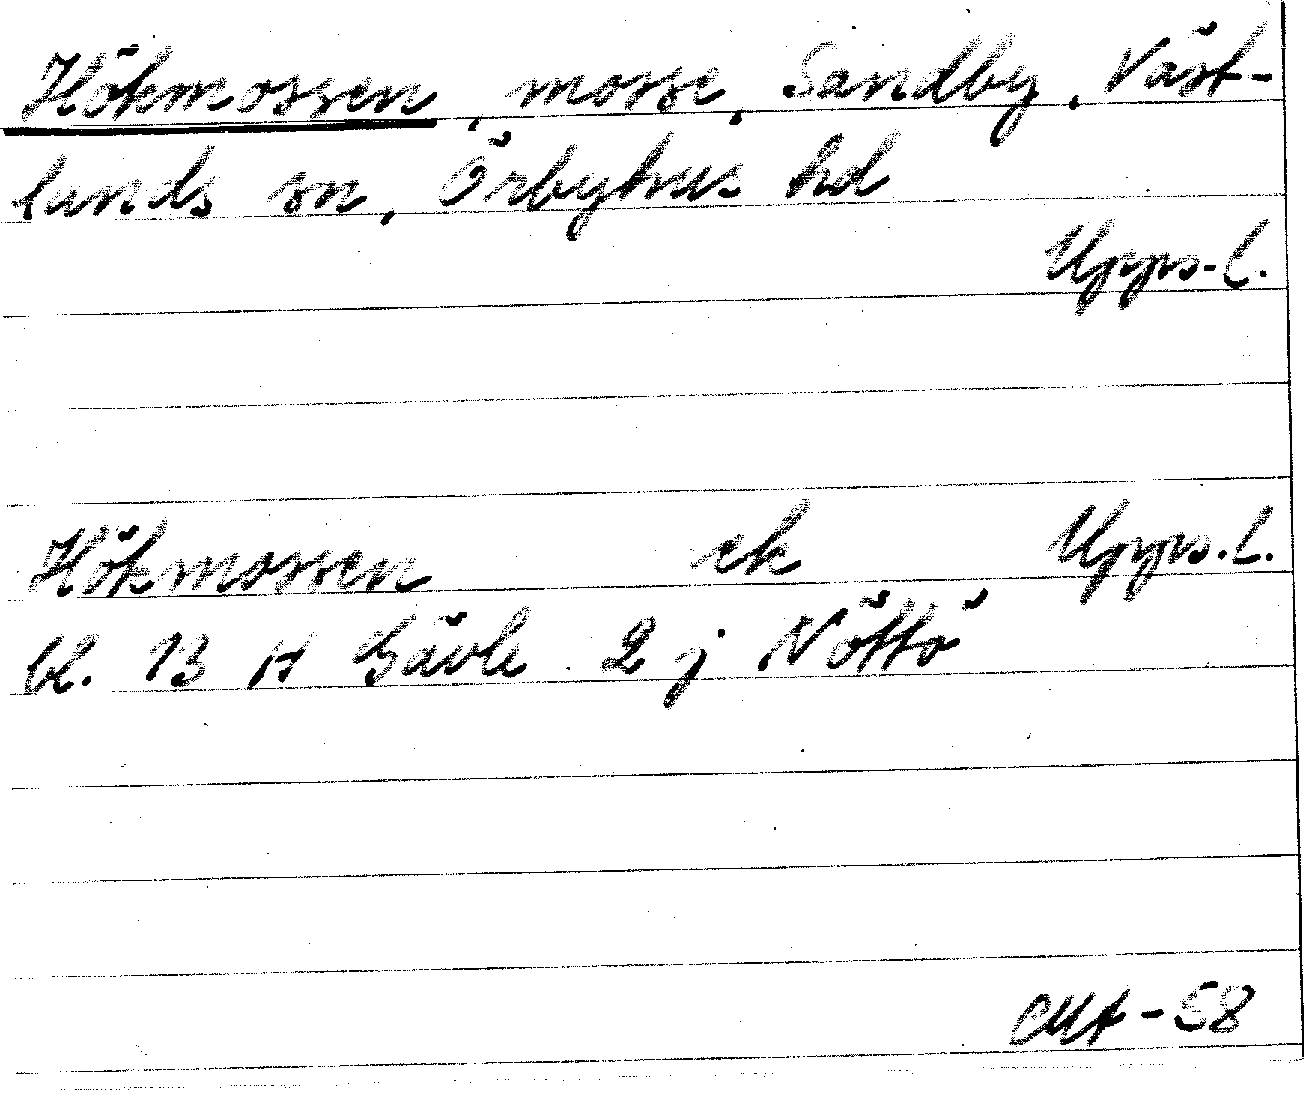 Hökmossen, mosse, Sandby, Väst-
lands sn, Örbyhus hd
Upps. l.
Hökmossen ek Upps. l.
bl. 13 H Gävle 2 j Nöttö
CMA-58